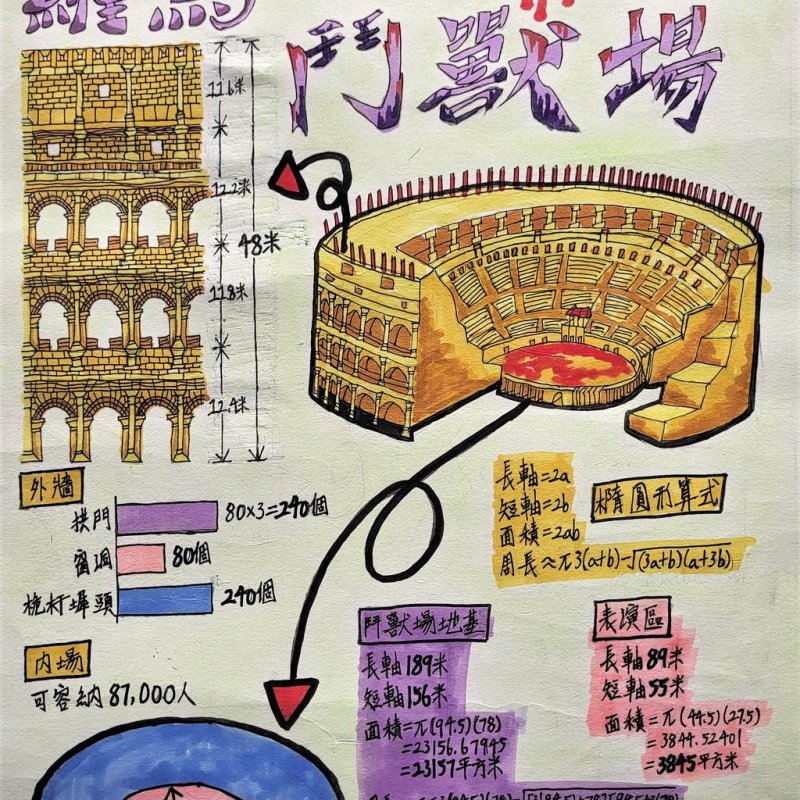 羅馬
鬥獸場
11.6米
12.2米
48米
11.8米
12.4米
外牆
拱門 80x3=240個
窗洞 80個
桅杆墀頭 240個
內場
可容納 87,000人
長軸=2a
短軸=2b
面積=2ab
周長≈π3(a+b)-√(3a+b)(a+3b)
橢圓形算式
鬥獸場地基
長軸189米
短軸156米
面積=π(94.5)(78)
=23156.67945
=23157平方米
表演區
長軸89米
短軸55米
面積=π(44.5)(27.5)
=3844.52401
=3845平方米